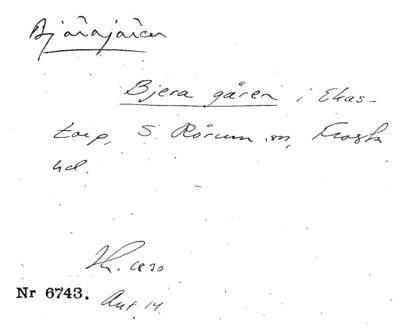 Bjärajären
Bjera gären i Ekas-
torp, S. Rörum sn, Frosta
hd.
1830
Nr 6743. Ant. 14.